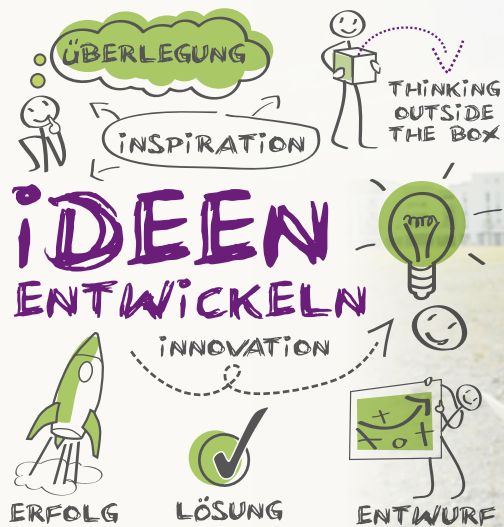 ÜBERLEGUNG
THiNKiNG
OUTSiDE
THE BOX
iNSPiRATiON
iDEEN
ENTWiCKELN
iNNOVATiON
ERFOLG
LÖSUNG
ENTWURF